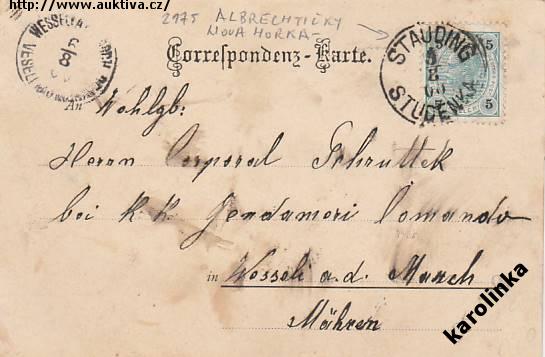 http://www.auktiva.cz/
2175 ALBRECHTIČKY
NOVÁ HORKA
Correspondenz-Karte.
STAUDING
STUDENKA
5
5
WESSELI
An Wohlgb:
Herrn Corporal Schruttek
bei k.k. Gendameri Comando
in Wesseli a.d. March
Mähren
karolinka